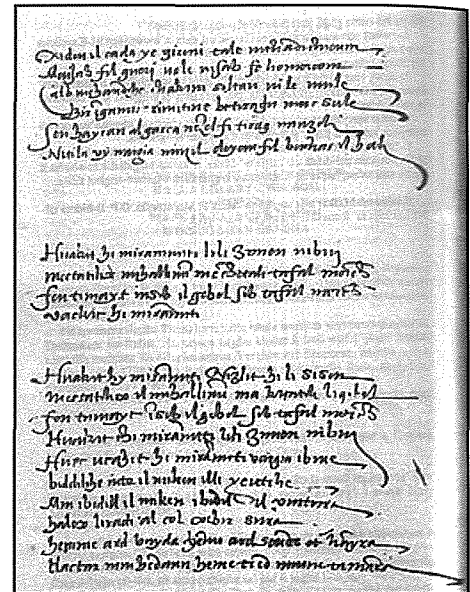 Xideu il cada ye gireni tale nichadithicum
Mensab fil gueri uele nisab fo homorcom
calb mehandihe chakim soltan ui le mule
Bir imgamic rimitine betiragin mucsule
fen hayran al garca nenzel fi tirag minzeli
Nitila vy nargia ninzil deyem fil bachar il hali
Huakit hi mirammiti lili Zimen nibni
mectatilix mihallimin me chitali tafal morchi
fen timayt insib il gebel sib tafal morchi
vackit hi mirammiti
Huakit hy mirammiti Nizlit hi li sisen
mectatilix il mihallimin ma kitatili li gebel
fen tumayt insib il gebel sib tafal morchi
Huakit thi mirammiti lili Zimen nibni
Huec ucakit hi mirammiti vargia ibnie
biddilihe inte il miken illi yeutihe
Min ibidill il miken ibidil il vintura
halex liradi 'al col xebir sura
hemme ard bayda v hemme ard seude et hamyra
Hactar min hedann heme tred minne tamarra